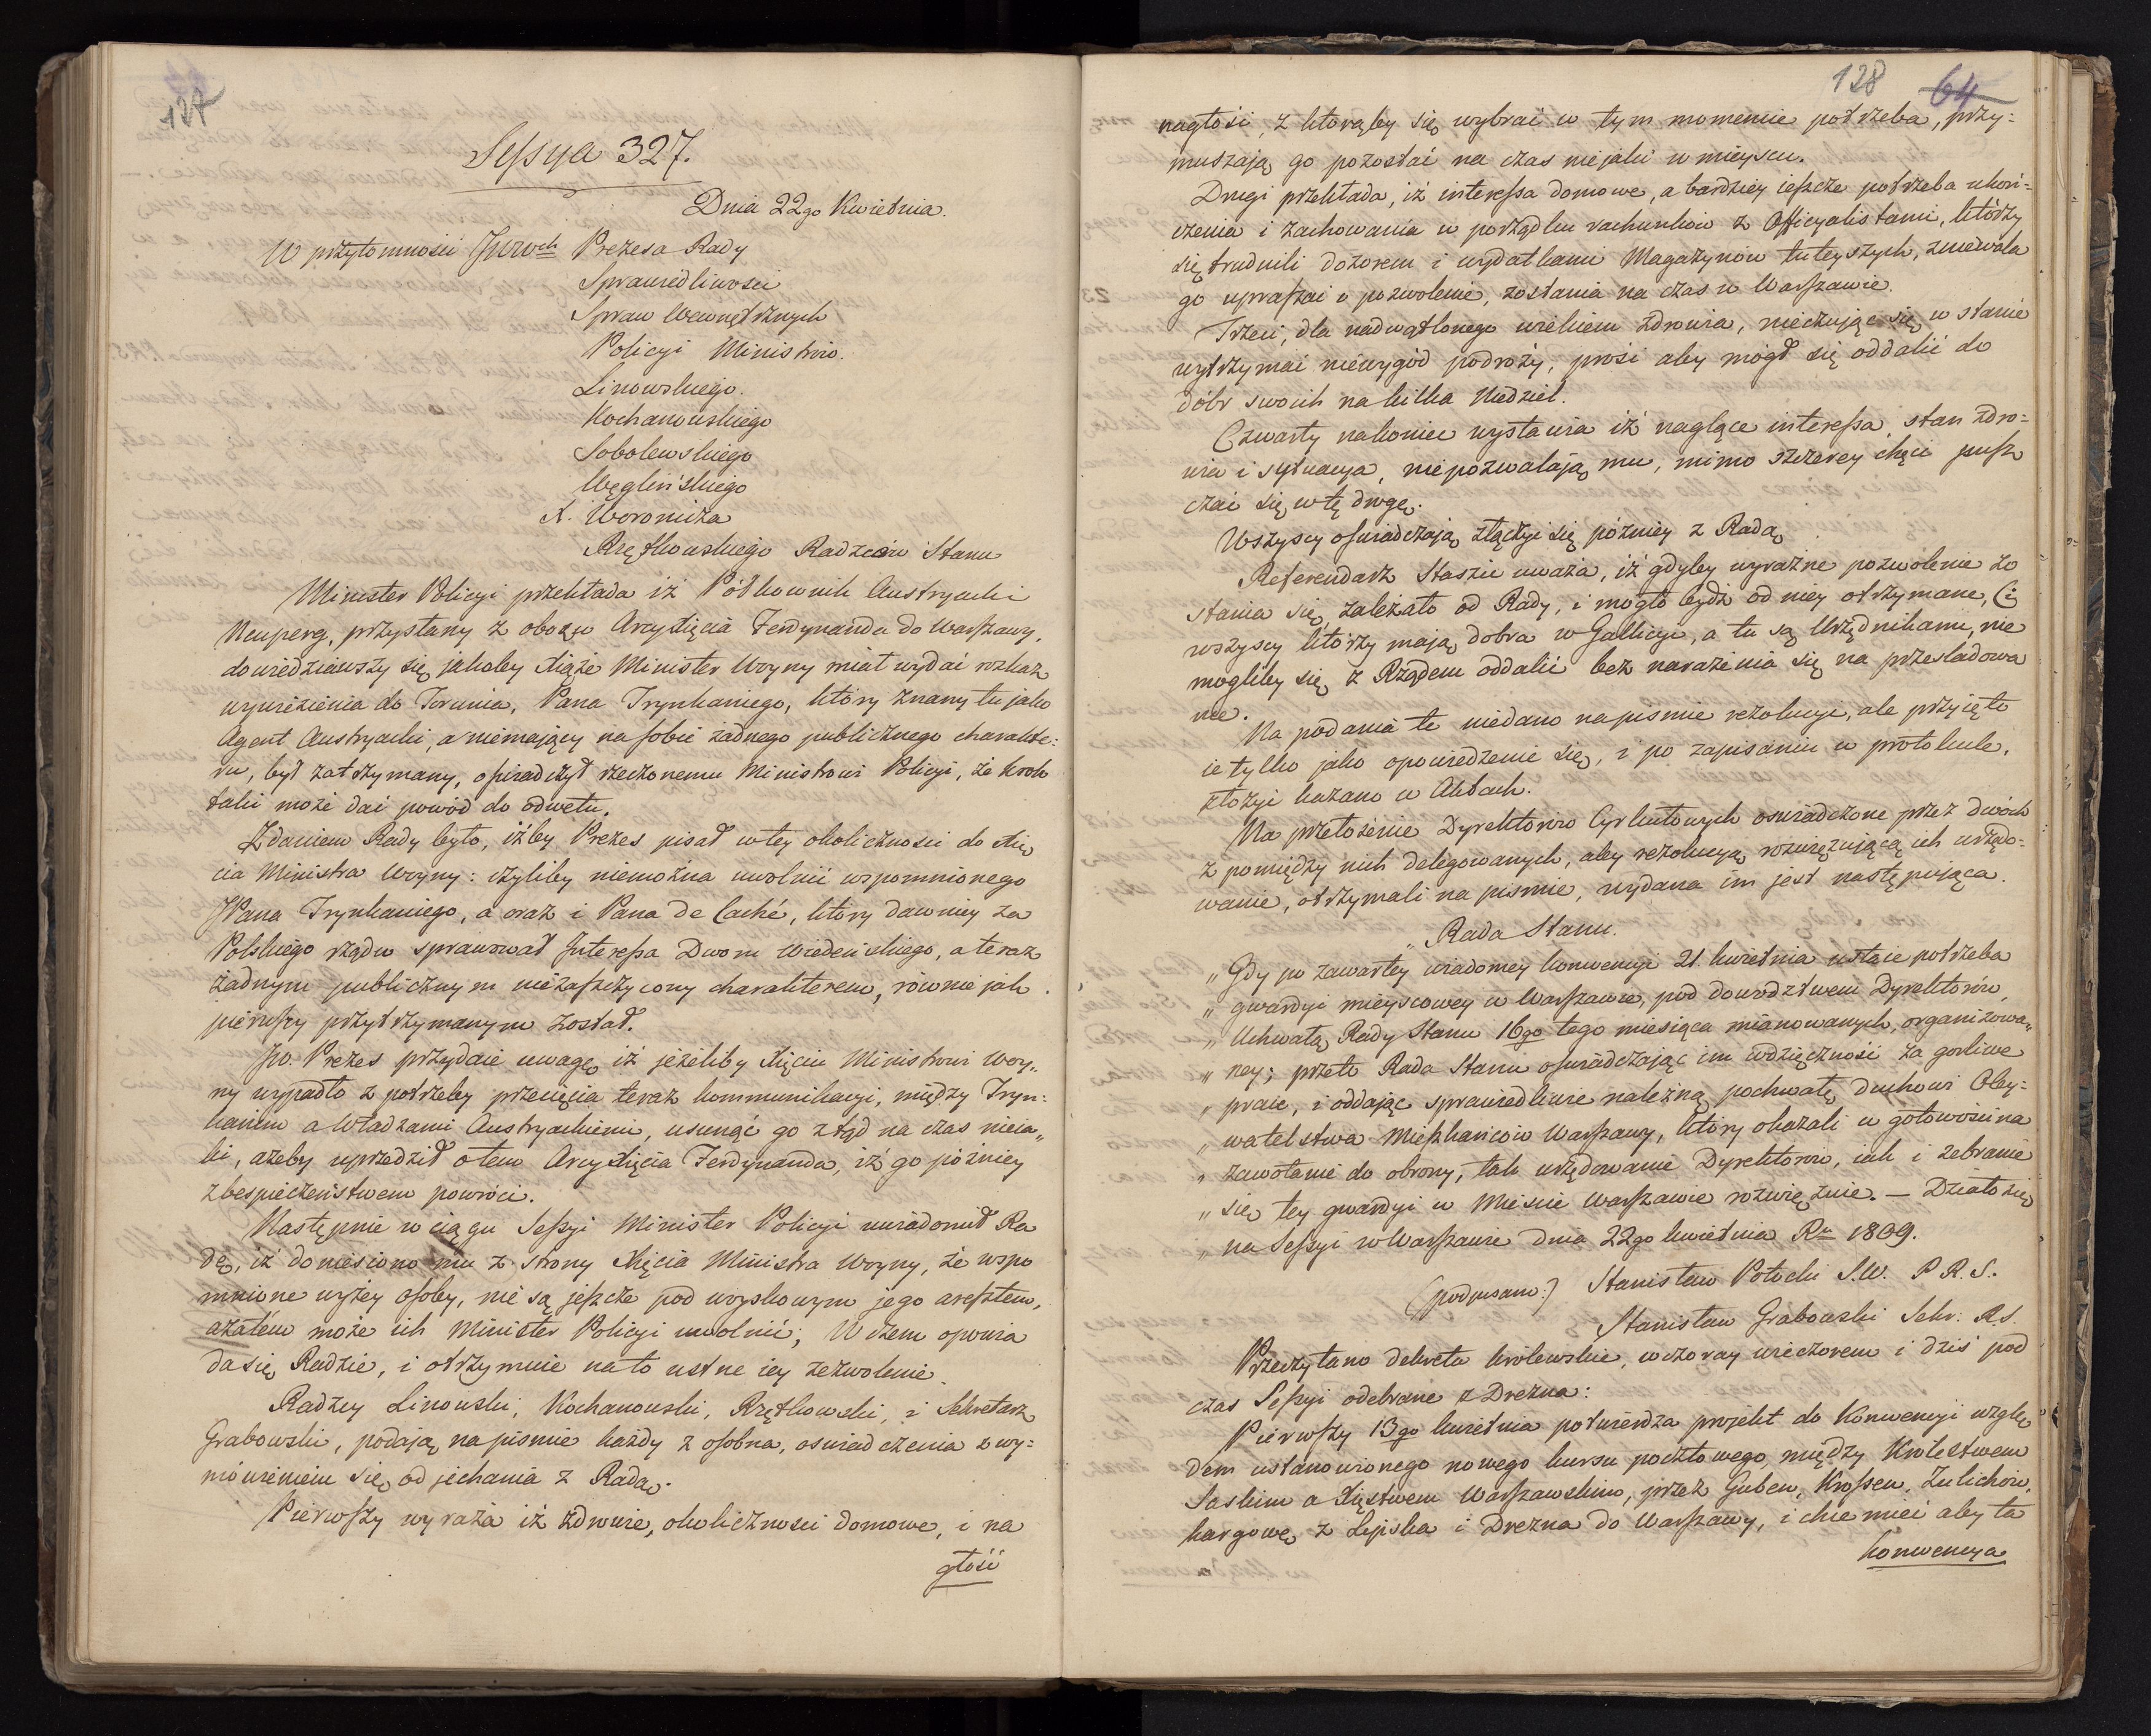 127
Sessya 327.
Dnia 22go Kwietnia.
W przytomności JWWch Prezesa Rady
Sprawiedliwości
Spraw Wewnętrznych
Policyi Ministrów.
Linowskiego.
Kochanowskiego
Sobolewskiego
Węgleńskiego
X. Woronicza
Rzętkowskiego Radzców Stanu
Minister Policyi przekłada iż Półkownik Austryacki
Neuperg, przysłany z obozu Arcy Xięcia Ferdynanda do Warszawy,
dowiedziawszy się jakoby Xiąże Minister Woyny miał wydać rozkaz
wywiezienia do Torunia, Pana Trynkaniego, który znany tu jako
Agent Austryacki, a niemający na sobie żadnego publicznego charakte:
ru, był zatrzymany, oświadczył rzeczonemu Ministrowi Policyi, że krok
taki może dać powód do odwetu.
Zdaniem Rady było, iżby Prezes pisał w tey okoliczności do Xię
cia Ministra Woyny: czyliby niemożna uwolnić wspomnionego
JPana Trynkaniego, a oraz i Pana de Caché, który dawniey za
Polskiego rządu sprawował Interessa Dworu Wiedeńskiego, a teraz
żadnym publicznym niezaszczycony charakterem, równie jak
pierwszy przytrzymanym został.
Jw. Prezes przydaie uwagę iż jeżeliby Xięciu Ministrowi Woy„
ny wypadło z potrzeby przecięcia teraz kommunikacyi, między Tryn:
kanim a Władzami Austryackiemi, usunąć go ztąd na czas nieia„
ki, ażeby uprzedził o tem Arcy Xięcia Ferdynanda, iż go późniey
z bespieczeństwem powróci.
Następnie w ciągu Sessyi Minister Policyi uwiadomił Ra
dę, iż doniesiono mu z strony Xięcia Ministra Woyny, że wspo
mnione wyżey osoby, nie są jeszcze pod woyskowym jego aresztem,
a zatem może ich Minister Policyi uwolnić; W czem opowia
da się Radzie, i otrzymuie na to ustne iey zezwolenie.
Radzcy Linowski, Kochanowski, Rzętkowski, i Sekretarz
Grabowski, podają na pismie każdy z osobna, oswiadczenia z wy:
mówieniem się od jechania z Radą.
Pierwszy wyraża iż zdrowie, okoliczności domowe, i na
głość
128 64
nagłość, z którąby się wybrać w tym momencie potrzeba, przy:
muszają go pozostać na czas niejaki w mieyscu.
Drugi przekłada, iż interessa domowe, a bardziey ieszcze potrzeba ukoń:
czenia i zachowania w porządku rachunków z Officyalistami, którzy
się trudnili dozorem i wydatkami Magazynów tuteyszych, zniewala
go upraszać o pozwolenie, zostania na czas w Warszawie.
Trzeci, dla nadwątlonego wiekiem zdrowia, nieczując się w stanie
wytrzymać niewygód podróży, prosi aby mógł się oddalić do
dóbr swoich na kilka Niedziel.
Czwarty nakoniec wystawia iż naglące interessa, stan zdro:
wia i sytuacya, niepozwalają mu, mimo szczerey chęci pusz
czać się w tę drogę.
Wszyscy oswiadczają złączyć się późniey z Radą
Referendarz Staszic uważa, iż gdyby wyraźne pozwolenie zo
stania się, zależało od Rady, i mogło bydź od niey otrzymane, Ci
wszyscy którzy mają dobra w Gallicyi, a tu są Urzędnikami, nie
mogliby się z Rządem oddalić bez narażenia się na prześladowa
nie.
Na podania te niedano na pismie rezolucyi, ale przyięto
ie tylko jako opowiedzenie się, i po zapisaniu w protokule,
złożyć kazano w Aktach.
Na przełożenie Dyrektorów Cyrkułowych oswiadczone przez dwóch
z pomiędzy nich delegowanych, aby rezolucyą rozwięzującą ich urzędo:
wanie, otrzymali na pismie, wydana im jest następująca.
„Rada Stanu.
„Gdy po zawartey wiadomey konwencyi 21. kwietnia ustaie potrzeba
„gwardyi mieyscowey w Warszawie, pod dowodztwem Dyrektorów,
„Uchwałą Rady Stanu 16go tego miesiąca mianowanych, organizowa„
„ney; przeto Rada Stanu oswiadczając im wdzięczność za gorliwe
„prace, i oddając sprawiedliwie należną pochwałę duchowi Oby:
„watelstwa Mieszkańców Warszawy, który okazali w gotowości na
„zawołanie do obrony, tak urzędowanie Dyrektorów, iak i zebranie
„się tey gwardyi w Mieście Warszawie rozwięzuie. — Działo się
„na Sessyi w Warszawie dnia 22go kwietnia Ru 1809.
(podpisano:) Stanisław Potocki S.W. P.R.S.
Stanisław Grabowski Sekr: R.S.
Przeczytano dekreta królewskie, wczoray wieczorem i dziś pod
czas Sessyi odebrane z Drezna:
Pierwszy 13go kwietnia potwierdza projekt do Konwencyi wzglę
dem ustanowionego nowego kursu pocztowego, między Królestwem
Saskim a Xięstwem Warszawskim, przez Guben, Krossen, Zulichow,
kargowę, z Lipska i Drezna do Warszawy, i chce mieć aby ta
konwencya